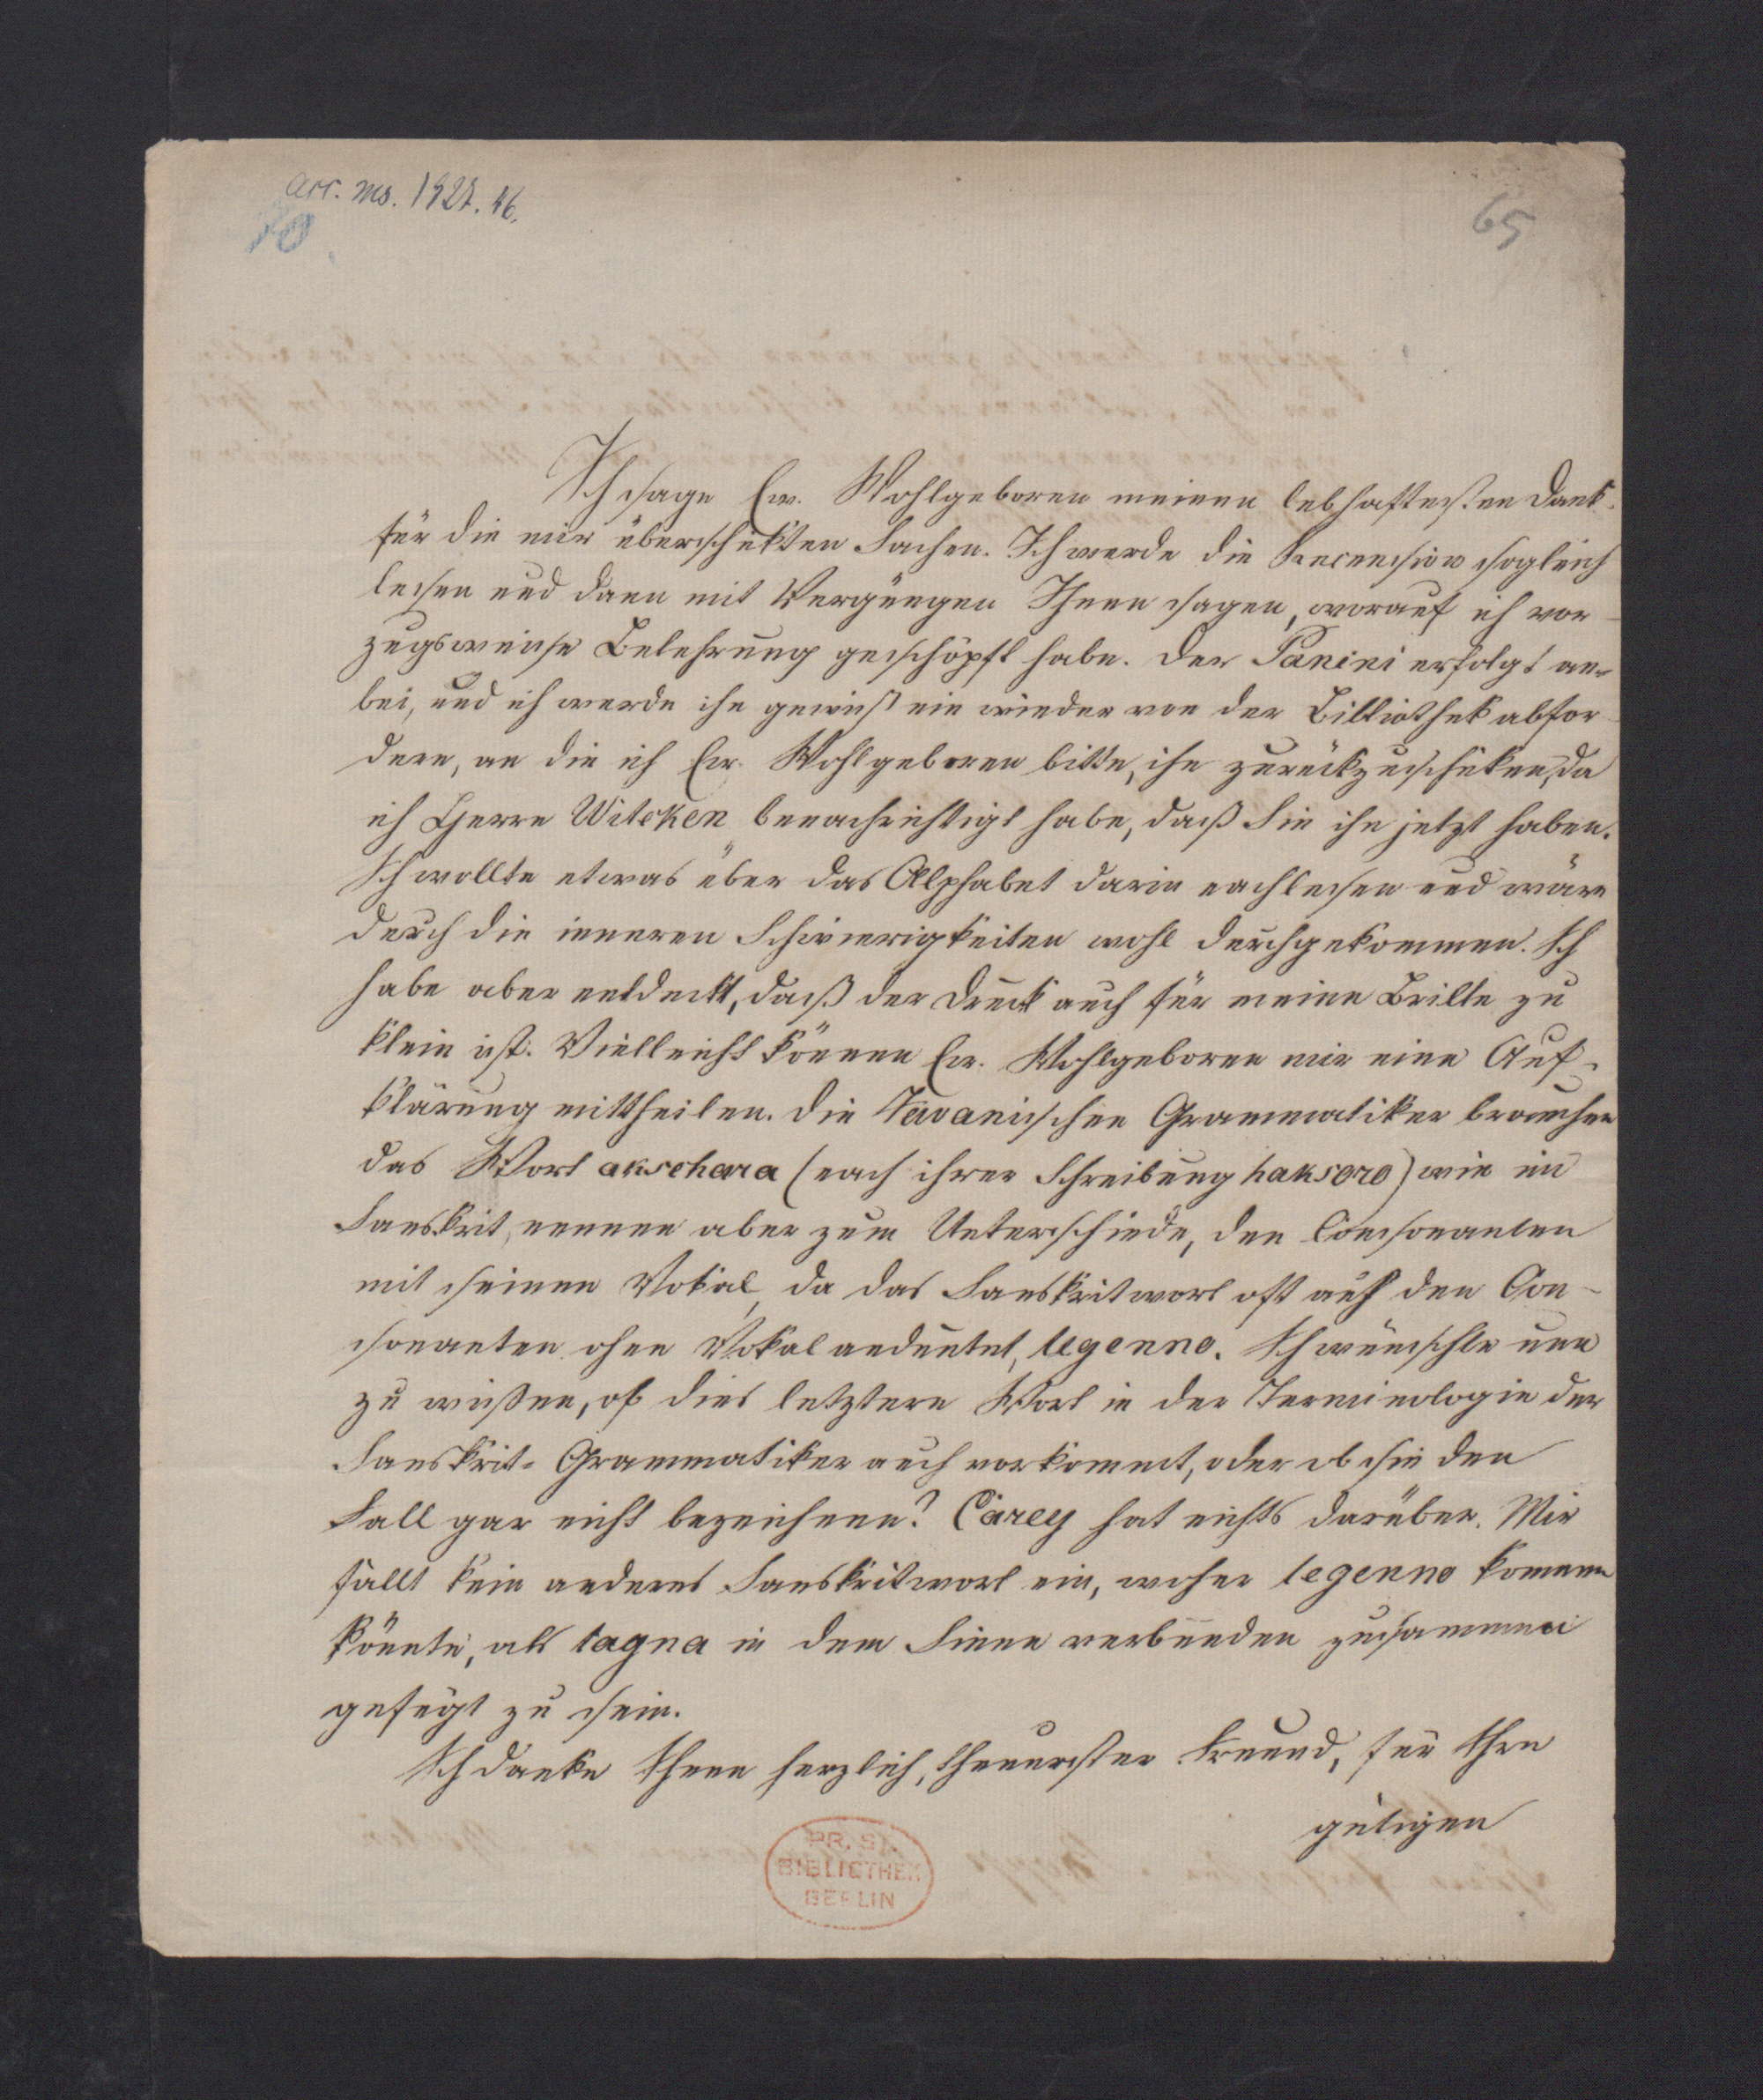 acc. ms. 1927. 46.
70
65
Ich sage Ew. Wohlgeboren meinen lebhaftesten Dank
für die mir überschickten Sachen. Ich werde die Recension sogleich
lesen und dann mit Vergnügen Ihnen sagen, worauf ich vor-
zugsweise Belehrung geschöpft habe. Der Panini erfolgt an-
bei, und ich werde ihn gewiß nie wieder von der Bibliothek abfor-
dern, an die ich Ew. Wohlgeboren bitte, ihn zurückzuschicken, da
ich Herrn Wilcken benachrichtigt habe, daß Sie ihn jetzt haben.
Ich wollte etwas über das Alphabet darin nachlesen und wäre
durch die inneren Schwierigkeiten wohl durchgekommen. Ich
habe aber entdeckt, daß der Druck auch für meine Brille zu
klein ist. Vielleicht können Ew. Wohlgeboren mir eine Auf-
klärung mittheilen. Die Javanischen Grammatiker brauchen
das Wort akschara (nach ihrer Schreibung haksoro) wie im
Sanskrit, nennen aber zum Unterschiede, den Consonanten
mit seinem Vokal, da das Sanskritwort oft auch den Con-
sonanten ohne Vokal andeutet, legenno. Ich wünschte nun
zu wissen, ob dies letztere Wort in der Terminologie der
Sanskrit-Grammatiker auch vorkommt, oder ob sie den
Fall gar nicht bezeichnen? Carey hat nichts darüber. Mir
fällt kein anderes Sanskritwort ein, woher legenno kommen
könnte, als lagna in dem Sinne verbunden zusammen
gefügt zu sein.
Ich danke Ihnen herzlich, theuerster Freund, für Ihre
gütigen
PR. ST.
BIBLIOTHEK
BERLIN